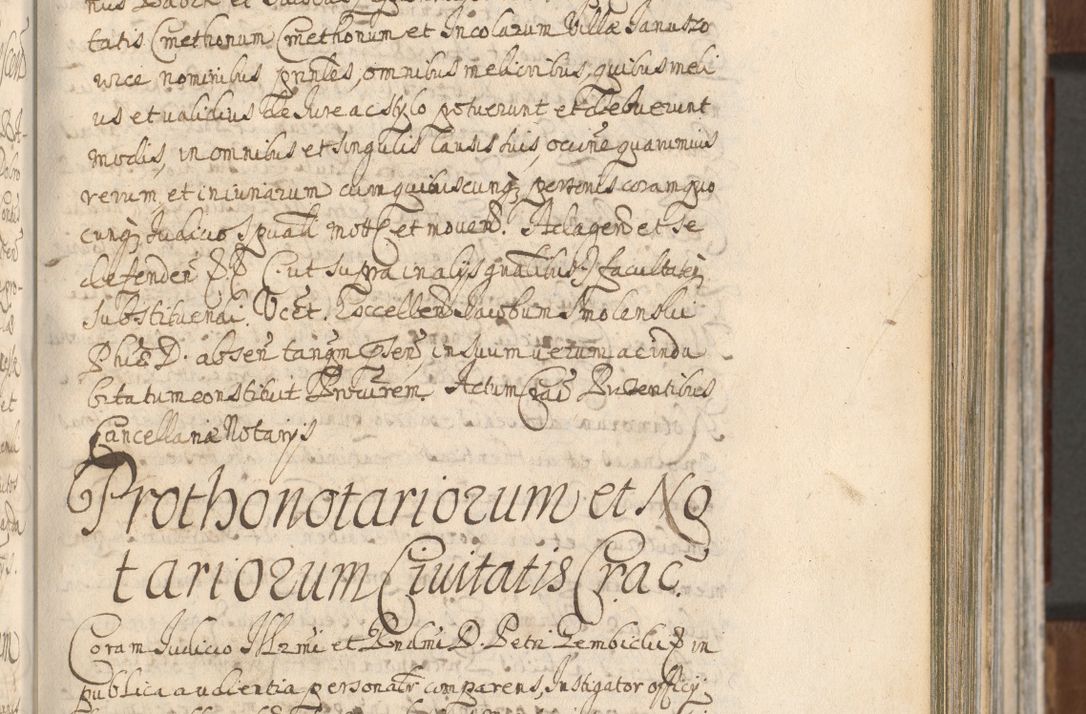 tatis Cmethonum Cmethonum et Incolarum Villæ Januszo
wice nominibus pñtes, omnibus melioribus, quibus meli
us et validius de Jure ac stylo potuerunt et debuerunt
modis, in omnibus et singulis causis suis, occñe quarumvis
rerum et iniuriarum cum quibuscunq, personis coram quo
cunq, Judicio Spuali mott et movend. Ad agend et se
defenden (ut supra in alijs gnalibus) facultatem
substituendi. Vcet. Excellend Jacobum Smolenski
Phiæ D. absen tanqm Psen, in suum verum ac indu
bitatum constituit Procurem. Actum Crac Præsentibus
Cancellariæ Notarijs
Prothonotariorum et No
tariorum Civitatis Crac.
Coram Judicio Illrmi et Rndmi D. Petri Gembicki in
publica audientia personalr comparens, Instigator officij